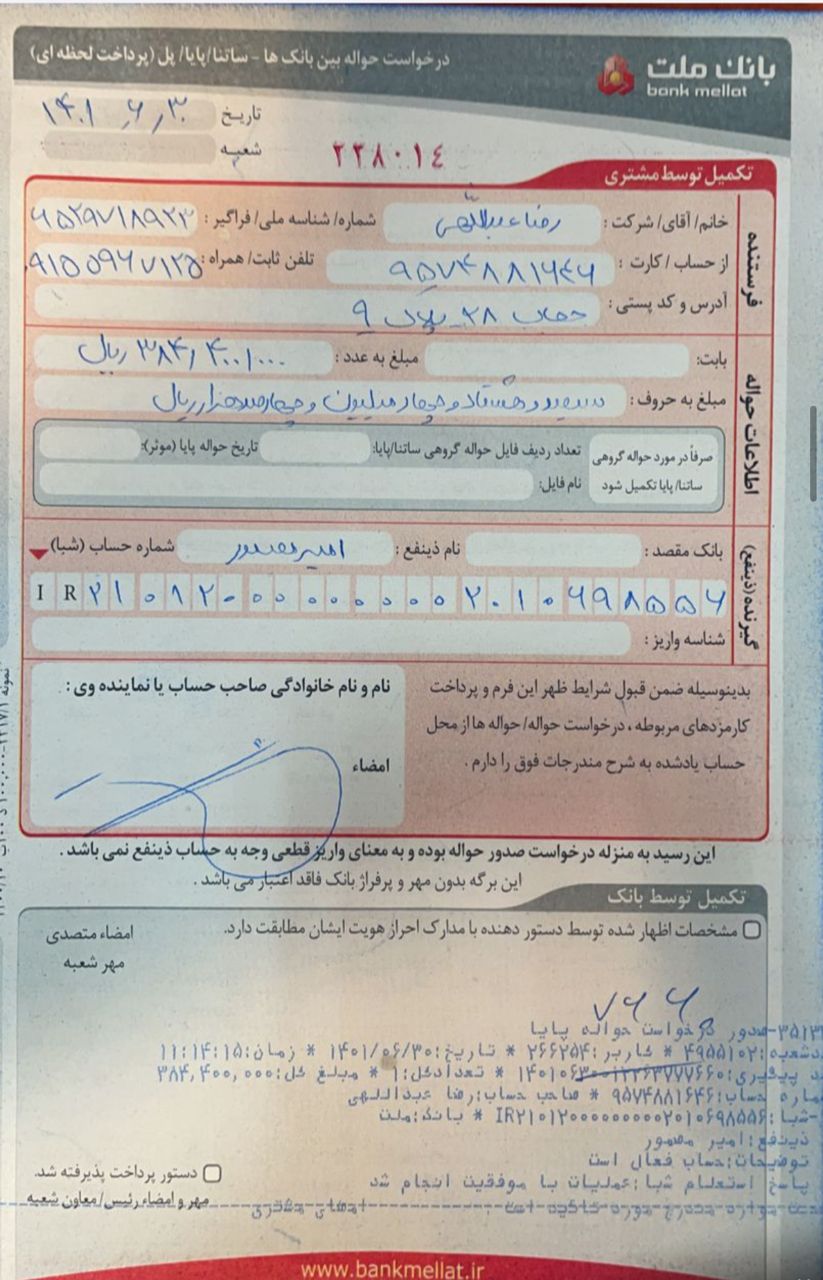 بانک ملت
bank mellat
درخواست حواله بین بانک ها - ساتنا/پایا/ پل (پرداخت لحظه ای)
تاریخ ۱۴۰۱ ٫ ۶ ٫ ۳۰
شعبه
۲۲۸۰۱۴
تکمیل توسط مشتری
فرستنده
خانم/ آقای/ شرکت : رضا عبداللهی شماره/ شناسه ملی/ فراگیر : ۶۵۲۹۷۱۸۹۲۳
از حساب / کارت : ۹۵۷۴۸۸۱۶۴۶ تلفن ثابت/ همراه : ۹۱۵۵۹۶۷۱۲۵
آدرس و کد پستی : ۲۸ پلاک ۹
اطلاعات حواله
بابت: مبلغ به عدد : ۳۸۴٫۴۰۰٫۰۰۰ ریال
مبلغ به حروف : سیصد و هشتاد و چهار میلیون و چهارصد هزار ریال
صرفاً در مورد حواله گروهی ساتنا/ پایا تکمیل شود
تعداد ردیف فایل حواله گروهی ساتنا/پایا: تاریخ حواله پایا (موثر):
نام فایل:
گیرنده (ذینفع)
بانک مقصد : نام ذینفع : امیر شماره حساب (شبا)
IR۲۱۰۱۲۰۰۰۰۰۰۰۰۰۲۰۱۰۶۹۸۵۵۶
شناسه واریز :
بدینوسیله ضمن قبول شرایط ظهر این فرم و پرداخت
کارمزدهای مربوطه ، درخواست حواله/ حواله ها از محل
حساب یادشده به شرح مندرجات فوق را دارم .
نام و نام خانوادگی صاحب حساب یا نماینده وی :
امضاء
این رسید به منزله درخواست صدور حواله بوده و به معنای واریز قطعی وجه به حساب ذینفع نمی باشد .
این برگه بدون مهر و پرفراژ بانک فاقد اعتبار می باشد .
تکمیل توسط بانک
مشخصات اظهار شده توسط دستور دهنده با مدارک احراز هویت ایشان مطابقت دارد.
امضاء متصدی
مهر شعبه
۷۶۶
صدور درخواست حواله پایا
۴۹۵۵۱۰۲ * کاربر:۲۶۶۲۵۴ * تاریخ:۱۴۰۱/۰۶/۳۰ * زمان:۱۱:۱۴:۱۵
* تعدادکل:۱ * مبلغ کل:۳۸۴,۴۰۰,۰۰۰
حساب:۹۵۷۴۸۸۱۶۴۶ * صاحب حساب:رضا عبداللهی
شبا:IR۲۱۰۱۲۰۰۰۰۰۰۰۰۰۲۰۱۰۶۹۸۵۵۶ * بانک:ملت
ذینفع:امیر
توضیحات:حساب فعال است
پاسخ استعلام شبا:عملیات با موفقیت انجام شد
مندرج مورد تائید است امضای مشتری
دستور پرداخت پذیرفته شد.
مهر و امضاء رئیس/ معاون شعبه
www.bankmellat.ir